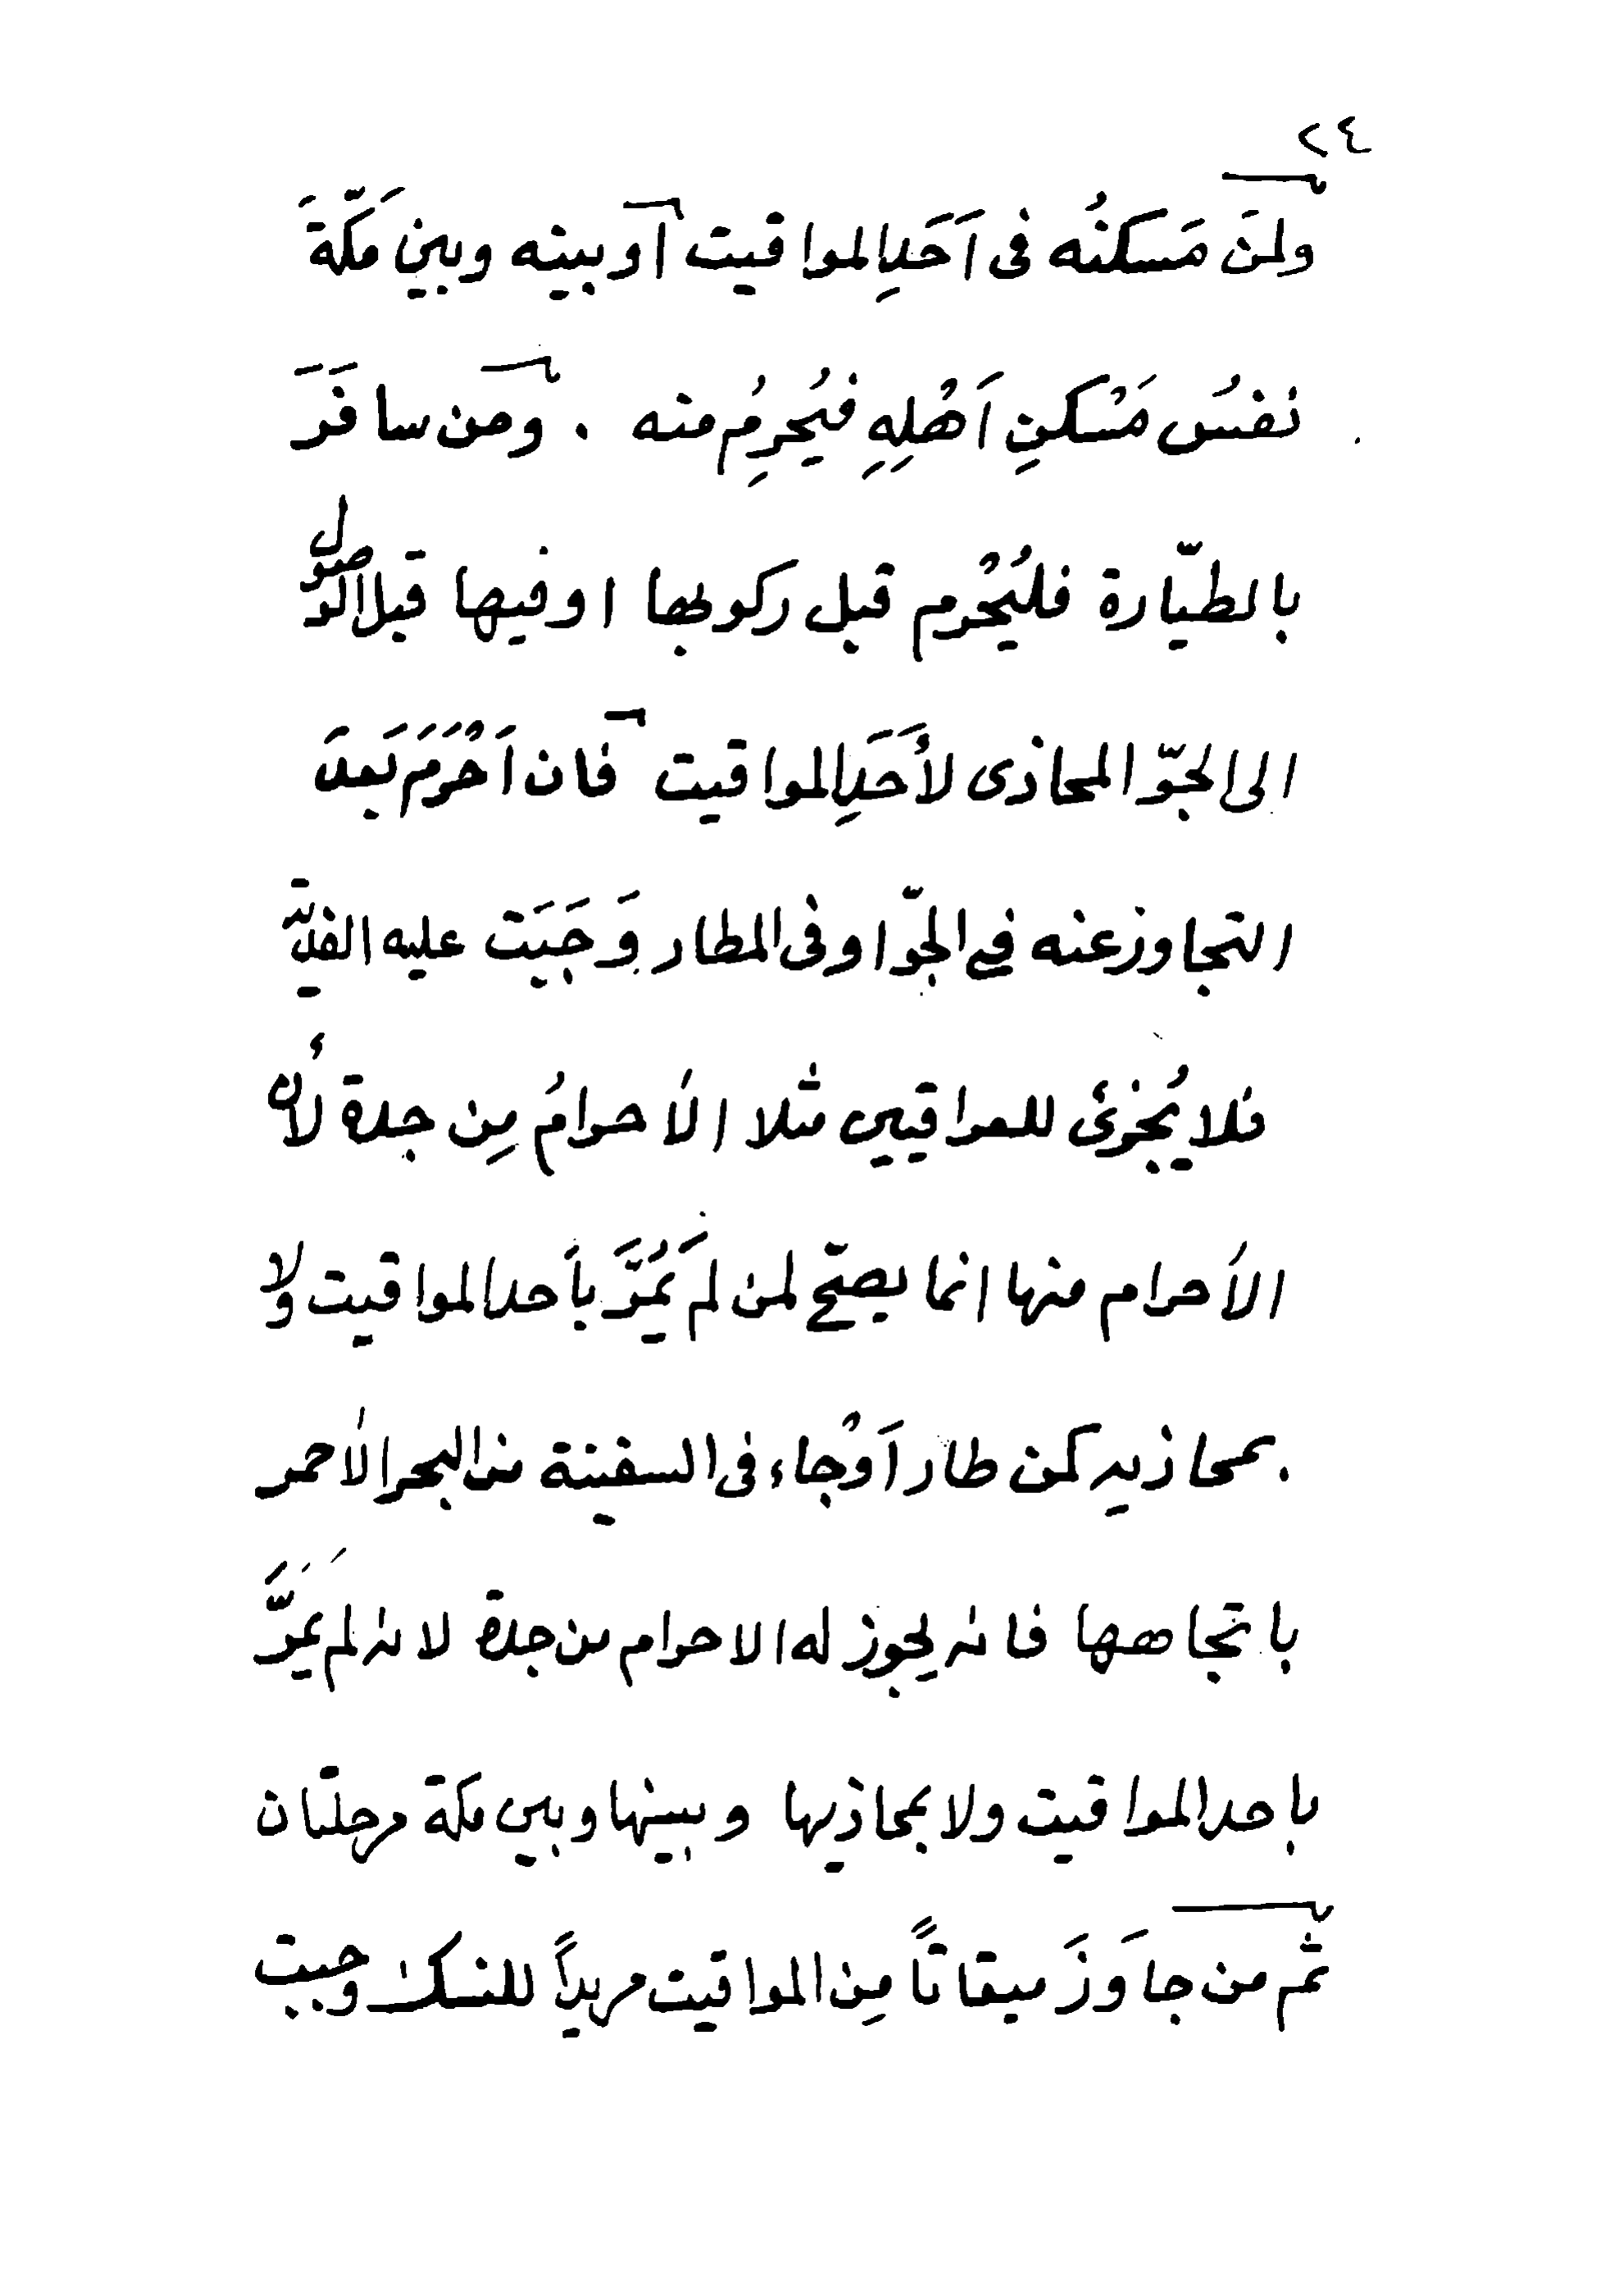 ٢٤
ولمَن مَسكنُه فى اَحَدِ المواقيت اَو بينه وبين مَكّةَ
نفسُ مَسْكنِ اَهْلِهِ فيُحرِمُ منه . ومن سافَرَ
بالطيّارة فليُحْرم قبل ركوبها او فيها قبل الوصول
الى الجوّ المحاذى لأَحَدِ المواقيت فان اَحْرَمَ بَعدَ
التجاوز عنه فى الجوّ او فى المطار وَجَبَت عليه الفديّة
فلا يُجزئ للعراقيين مثلا الأحرامُ مِن جدة لأن
الأحرام منها انما يصحّ لمن لم يَمُرَّ بأحد المواقيت ولا
بمحاذيه كمن طار اَوْجاء فى السفينة من البحر الأحمر
باتجاهها فانه يجوز له الاحرام من جدة لانه لم يَمُرَّ
باحد المواقيت ولا بمحاذيها وبينها وبين مكة مرحلتان
ثم من جاوَزَ ميقاتاً مِن المواقيت مريداً للنسك وجبت